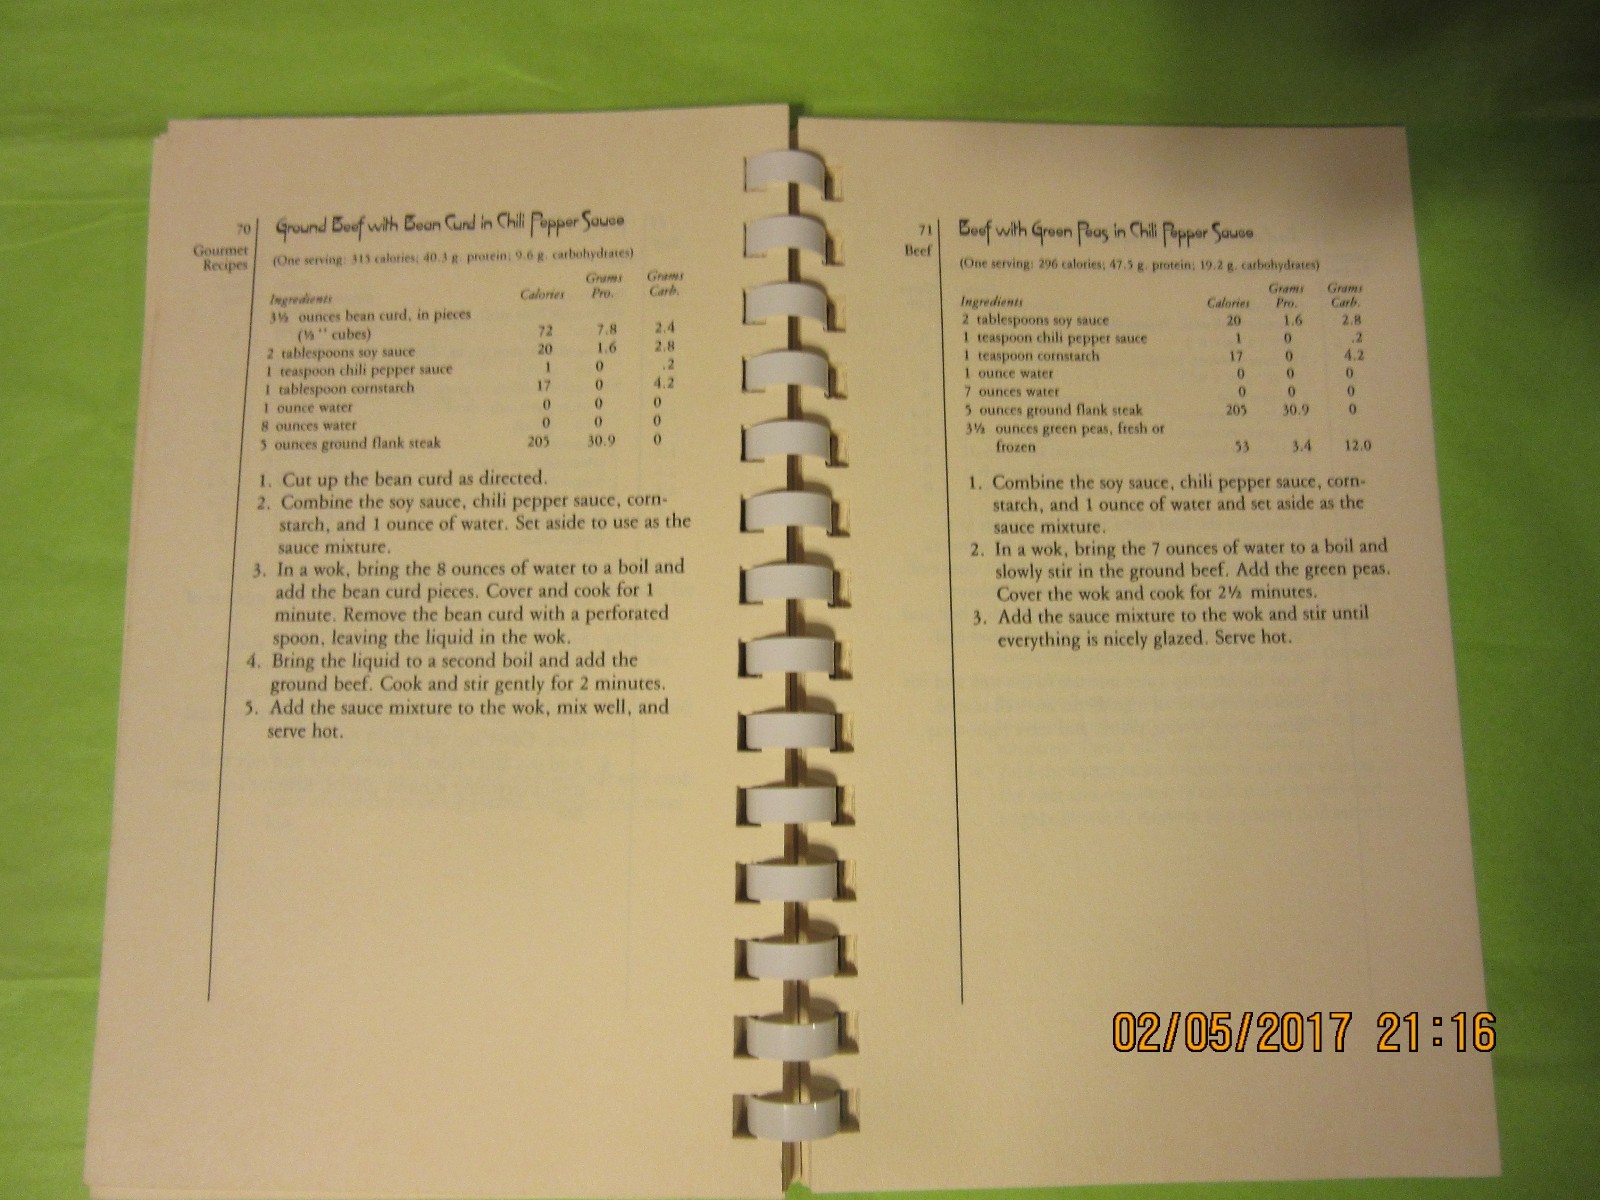 70
Gourmet
Recipes
Ground Beef with Bean Curd in Chili Pepper Sauce
(One serving: 315 calories; 40.3 g. protein; 9.6 g. carbohydrates)
Ingredients Calories Grams Pro. Grams Carb.
3½ ounces bean curd, in pieces
(½" cubes) 72 7.8 2.4
2 tablespoons soy sauce 20 1.6 2.8
1 teaspoon chili pepper sauce 1 0 .2
1 tablespoon cornstarch 17 0 4.2
1 ounce water 0 0 0
8 ounces water 0 0 0
5 ounces ground flank steak 205 30.9 0
1. Cut up the bean curd as directed.
2. Combine the soy sauce, chili pepper sauce, corn-
starch, and 1 ounce of water. Set aside to use as the
sauce mixture.
3. In a wok, bring the 8 ounces of water to a boil and
add the bean curd pieces. Cover and cook for 1
minute. Remove the bean curd with a perforated
spoon, leaving the liquid in the wok.
4. Bring the liquid to a second boil and add the
ground beef. Cook and stir gently for 2 minutes.
5. Add the sauce mixture to the wok, mix well, and
serve hot.
71
Beef
Beef with Green Peas in Chili Pepper Sauce
(One serving: 296 calories; 47.5 g. protein; 19.2 g. carbohydrates)
Ingredients Calories Grams Pro. Grams Carb.
2 tablespoons soy sauce 20 1.6 2.8
1 teaspoon chili pepper sauce 1 0 .2
1 teaspoon cornstarch 17 0 4.2
1 ounce water 0 0 0
7 ounces water 0 0 0
5 ounces ground flank steak 205 30.9 0
3½ ounces green peas, fresh or
frozen 53 3.4 12.0
1. Combine the soy sauce, chili pepper sauce, corn-
starch, and 1 ounce of water and set aside as the
sauce mixture.
2. In a wok, bring the 7 ounces of water to a boil and
slowly stir in the ground beef. Add the green peas.
Cover the wok and cook for 2½ minutes.
3. Add the sauce mixture to the wok and stir until
everything is nicely glazed. Serve hot.
02/05/2017 21:16